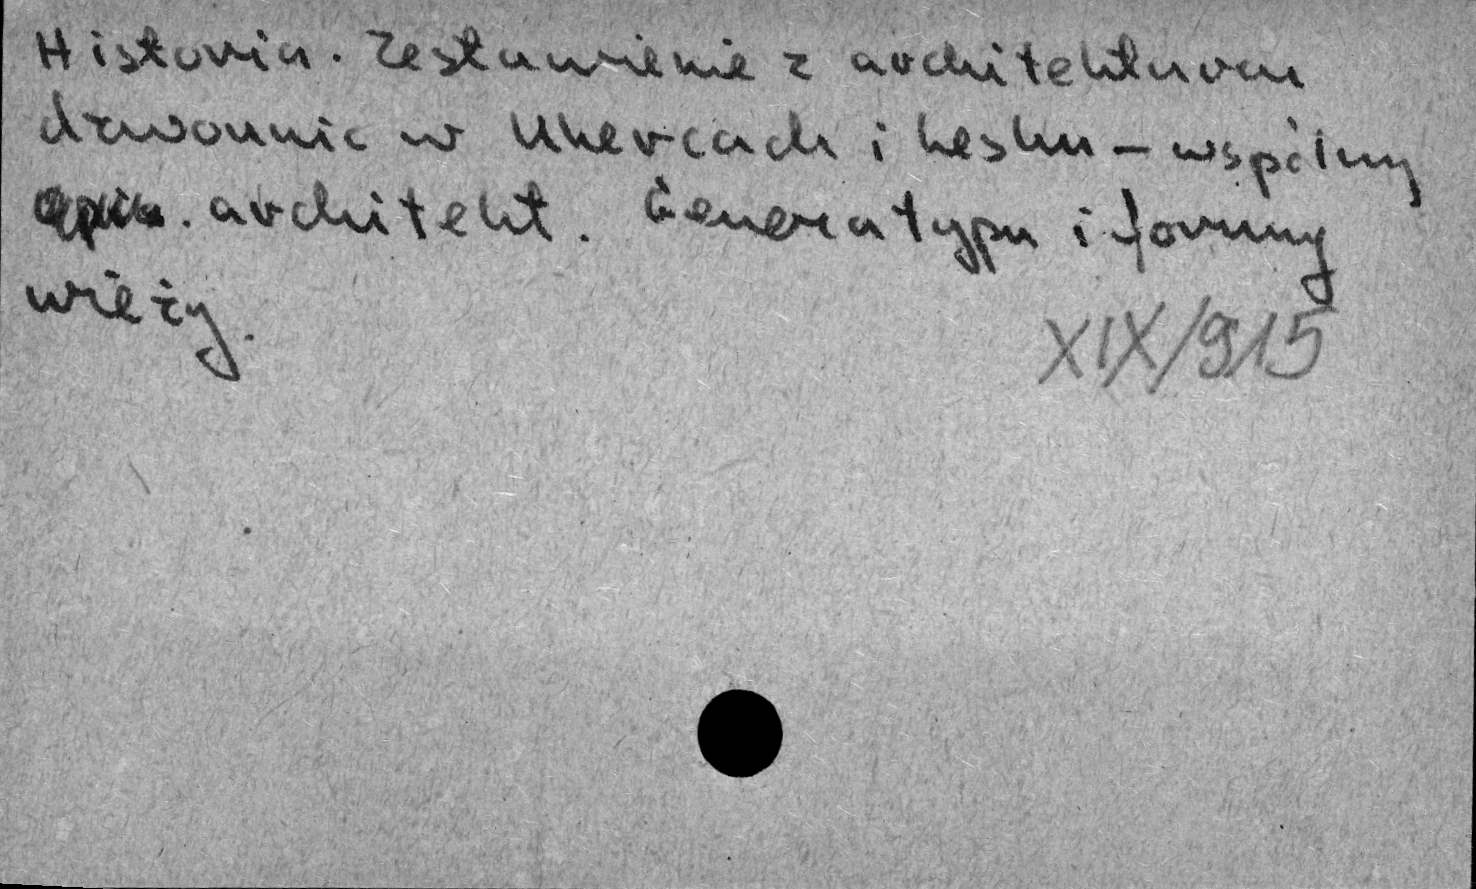 Historia. Zestawienie z architekturą
dzwonnic w Uhercach i Lesku – wspólny
architekt. Geneza typu i formy
wieży.
XIX/915